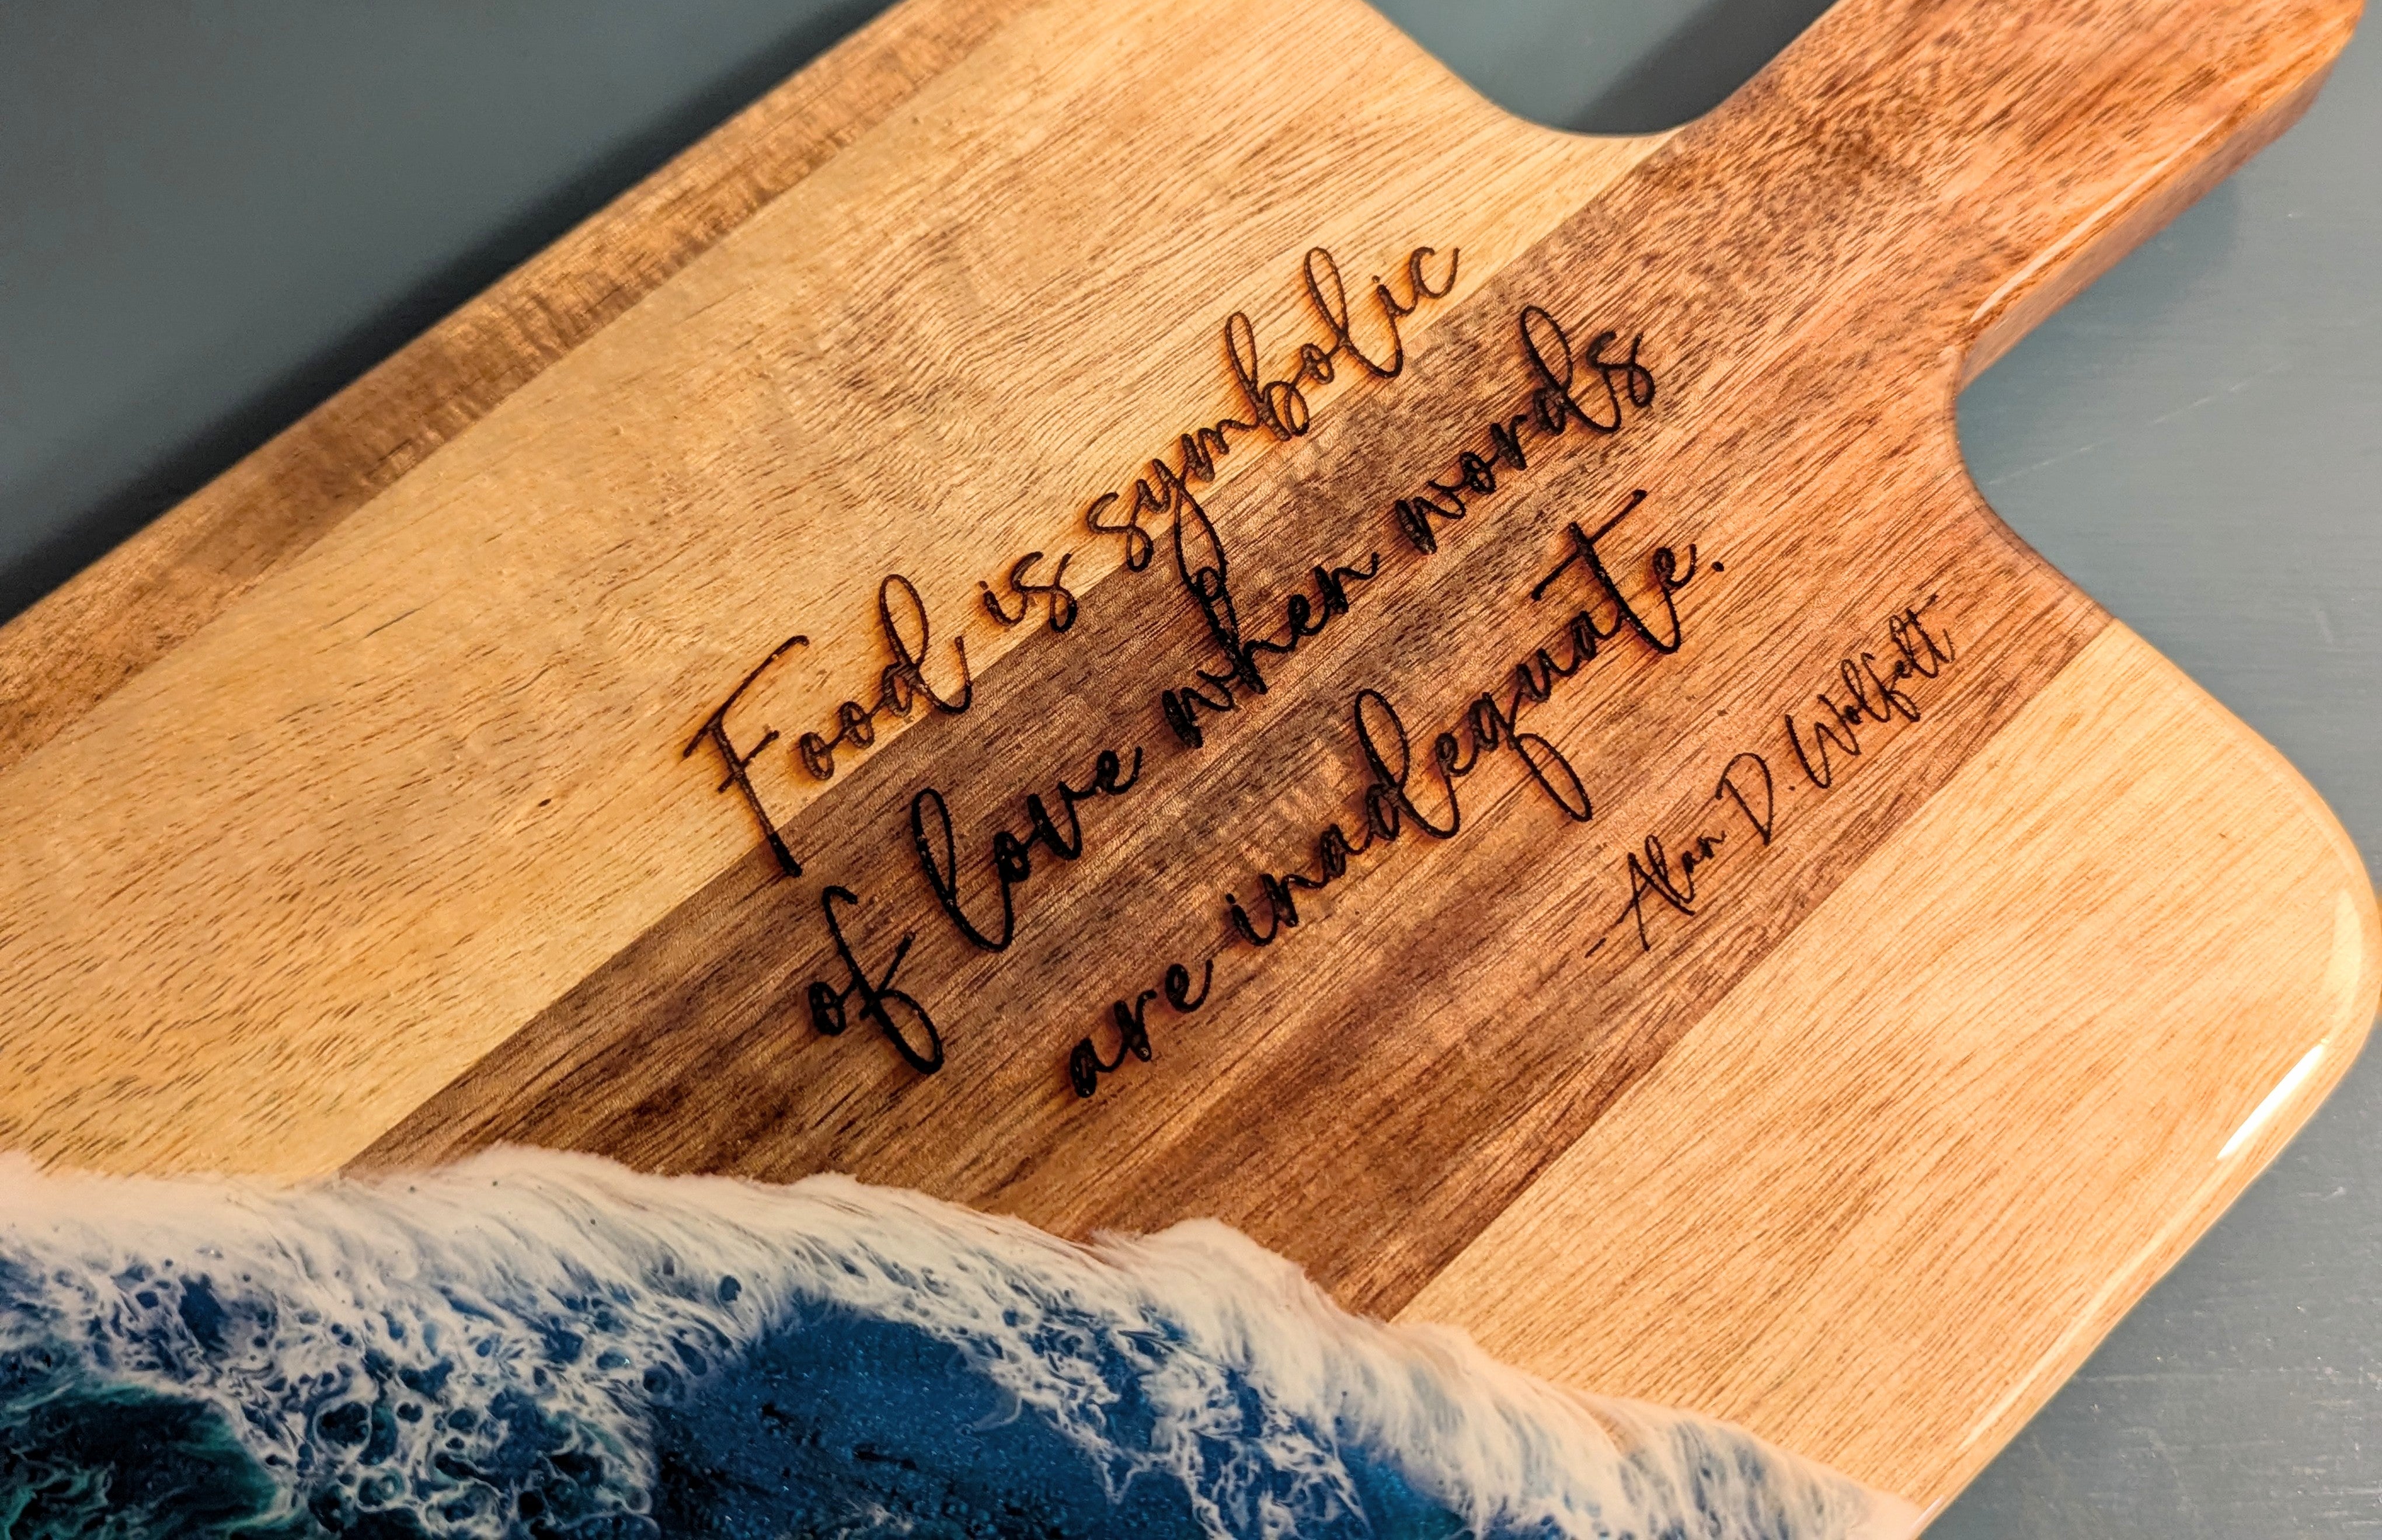 Food is symbolic
of love when words
are inadequate.
-Alan D. Wolfelt-